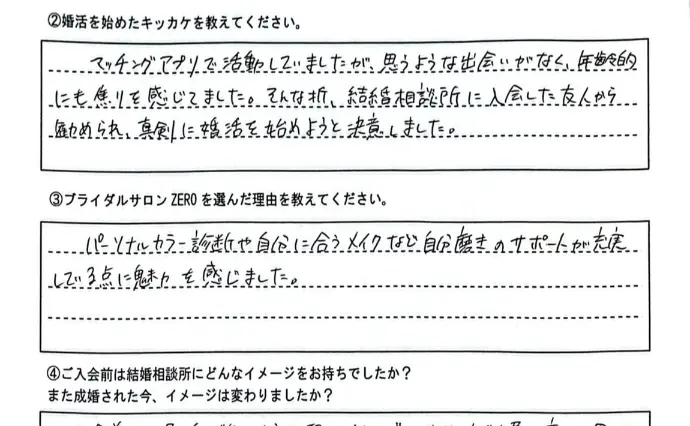 ②婚活を始めたキッカケを教えてください。
マッチングアプリで活動していましたが、思うような出会いがなく、年齢的
にも焦りを感じてました。そんな折、結婚相談所に入会した友人から
勧められ、真剣に婚活を始めようと決意しました。
③ブライダルサロン ZERO を選んだ理由を教えてください。
パーソナルカラー診断や自分に合うメイクなど自分磨きのサポートが充実
している点に魅力を感じました。
④ご入会前は結婚相談所にどんなイメージをお持ちでしたか？
また成婚された今、イメージは変わりましたか？